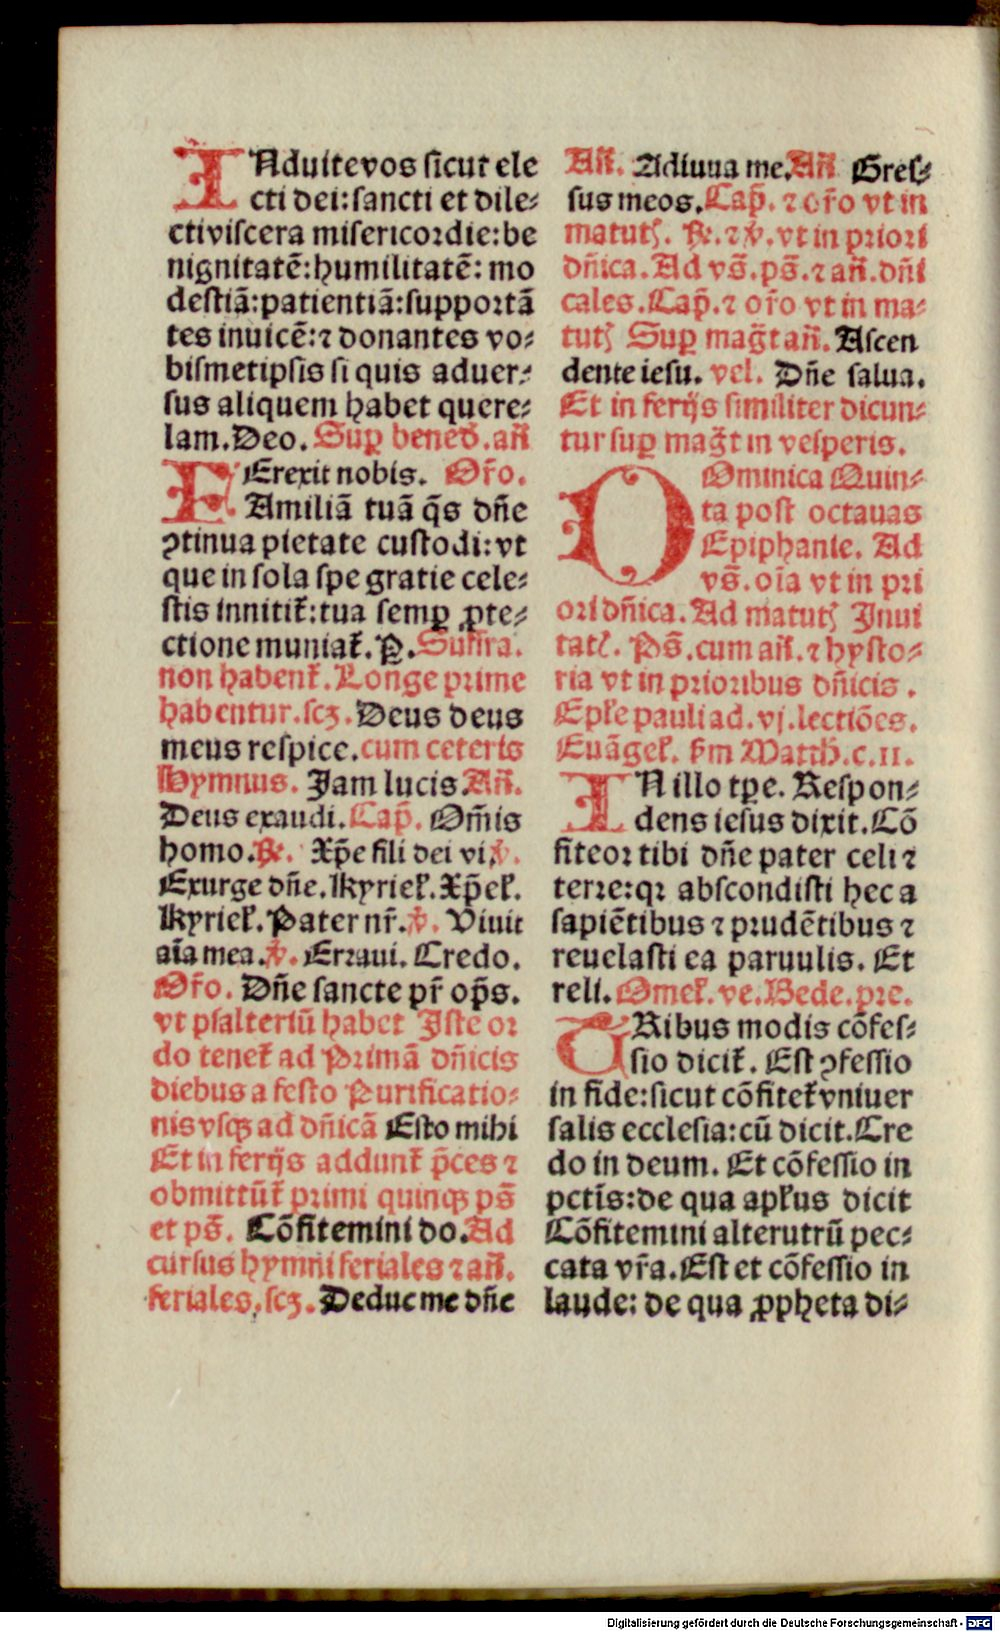 INduite vos sicut ele
cti dei: sancti et dile⸗
cti viscera misericordie: be
nignitatē: humilitatē: mo
destiā: patientiā: supportā
tes inuicē: ⁊ donantes vo⸗
bismetipsis si quis aduer⸗
sus aliquem habet quere⸗
lam. Deo. Suꝑ bened̄. an̄
Erexit nobis. Or̄o.
FAmiliā tuā q̄s dn̄e
ꝯtinua pietate custodi: vt
que in sola spe gratie cele⸗
stis innitit̄: tua semꝑ ꝓte⸗
ctione muniat̄. P. Suffra.
non habent̄. Longe prime
habentur. scꝫ. Deus deus
meus respice. cum ceteris
Hymnus. Jam lucis. An̄.
Deus exaudi. Cap̄. Om̄is
homo. ℟. Xp̄e fili dei vi. ℣.
Exurge dn̄e. Kyriel̄. Xp̄el̄.
Kyriel̄. Pater nr̄. ℣. Viuit
aīa mea. ℣. Erraui. Credo.
Or̄o. Dn̄e sancte pr̄ op̄s.
vt psalteriū habet Iste or
do tenet̄ ad Primā dn̄icis
diebus a festo Purificatio⸗
nis vsqꝫ ad dn̄icā Esto mihi
Et in ferijs addunt̄ p̄ces ⁊
obmittūt̄ primi quinqꝫ ps̄
et ps̄. Cōfitemini do. Ad
cursus hymni feriales ⁊ an̄.
feriales. scꝫ. Deduc me dn̄e
An̄. Adiuua me. An̄ Gres⸗
sus meos. Cap̄. ⁊ or̄o vt in
matutꝭ. ℟. ⁊ ℣. vt in priori
dn̄ica. Ad vs̄. ps̄. ⁊ an̄. dn̄i
cales. Cap̄. ⁊ or̄o vt in ma⸗
tutꝭ Suꝑ mag̅t an̄. Ascen
dente iesu. vel. Dn̄e salua.
Et in ferijs similiter dicun⸗
tur suꝑ mag̅t in vesperis.
DOminica Quin⸗
ta post octauas
Epiphanie. Ad
vs̄. oīa vt in pri
ori dn̄ica. Ad matutꝭ Inui
tatꝭ. Ps̄. cum an̄. ⁊ hysto⸗
ria vt in prioribus dn̄icis.
Ep̄le pauli ad. vj. lectiōes.
Euāgel̄. s̄m Matth̄. c. 11.
IN illo tp̄e. Respon⸗
dens iesus dixit. Cō
fiteor tibi dn̄e pater celi ⁊
terre: qꝛ abscondisti hec a
sapiētibus ⁊ prudētibus ⁊
reuelasti ea paruulis. Et
reli. Omel̄. ve. Bede. pre.
TRibus modis cōfes⸗
sio dicit̄. Est ꝯfessio
in fide: sicut cōfitet̄ vniuer
salis ecclesia: cū dicit. Cre
do in deum. Et cōfessio in
pctīs: de qua apl̄us dicit
Cōfitemini alterutrū pec⸗
cata vr̄a. Est et cōfessio in
laude: de qua ꝓpheta di⸗
Digitalisierung gefördert durch die Deutsche Forschungsgemeinschaft - DFG